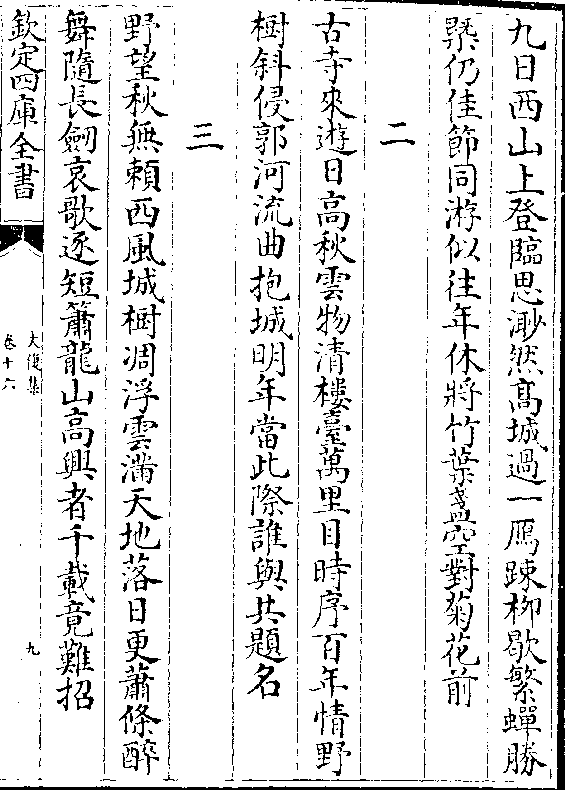 九日西山上登臨思渺然髙城過一鴈踈柳歇繁蟬勝
槩仍佳節同游似往年休將竹葉盞空對菊花前
二
古寺來遊日高秋雲物清樓臺萬里目時序百年情野
樹斜侵郭河流曲抱城明年當此際誰與共題名
三
野望秋無賴西風城樹凋浮雲滿天地落日更蕭條醉
舞隨長劒哀歌逐短簫龍山高興者千載竟難招
欽定四庫全書
大復集
卷十六
九